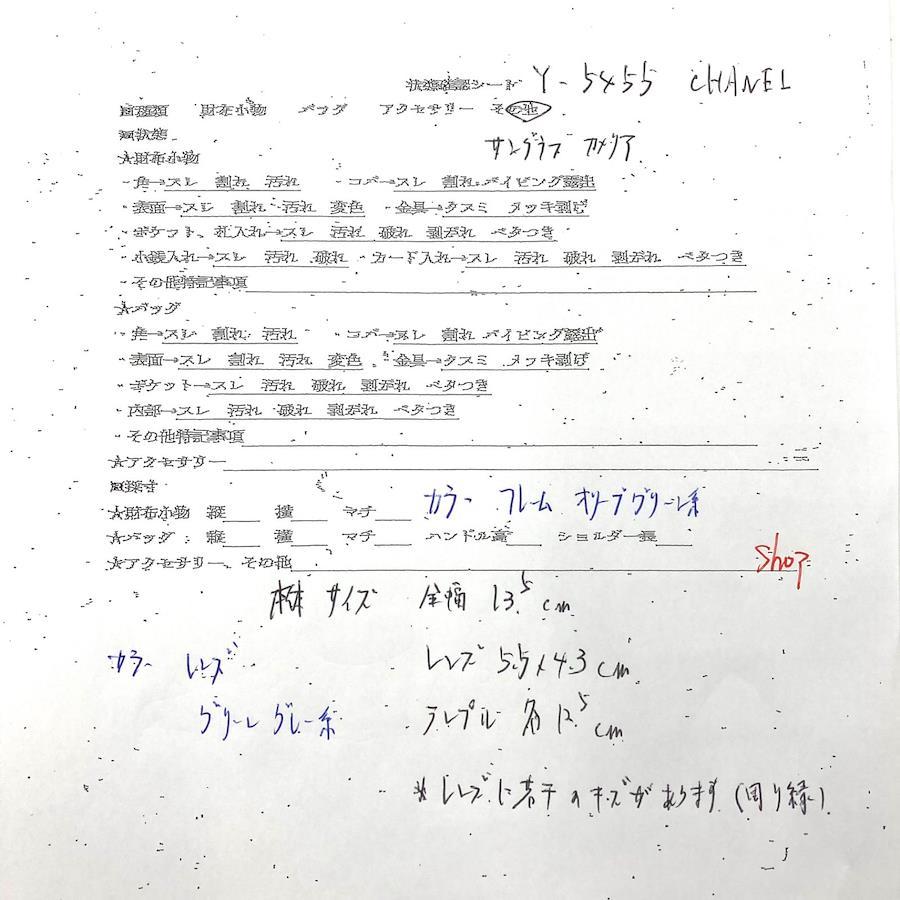 状態確認シート Y-5455 CHANEL
■種類 財布小物 バッグ アクセサリー その他
■状態 サングラス カメリア
★財布小物
・角→スレ 割れ 汚れ ・コバ→スレ 割れ パイピング露出
・表面→スレ 割れ 汚れ 変色 ・金具→クスミ メッキ剥げ
・ポケット、札入れ→スレ 汚れ 破れ 剥がれ ベタつき
・小銭入れ→スレ 汚れ 破れ ・カード入れ→スレ 汚れ 破れ 剥がれ ベタつき
・その他特記事項
★バッグ
・角→スレ 割れ 汚れ ・コバ→スレ 割れ パイピング露出
・表面→スレ 割れ 汚れ 変色 ・金具→クスミ メッキ剥げ
・ポケット→スレ 汚れ 破れ 剥がれ ベタつき
・内部→スレ 汚れ 破れ 剥がれ ベタつき
・その他特記事項
★アクセサリー
■採寸
★財布小物 縦 横 マチ カラー フレーム オリーブグリーン系
★バッグ 縦 横 マチ ハンドル高 ショルダー長
★アクセサリー、その他 shop
サイズ 全幅 13.5cm
カラー レンズ レンズ 5.5×4.3cm
グリーン グレー系 テンプル 各12.5cm
*レンズに若干のキズがあります(周り縁)